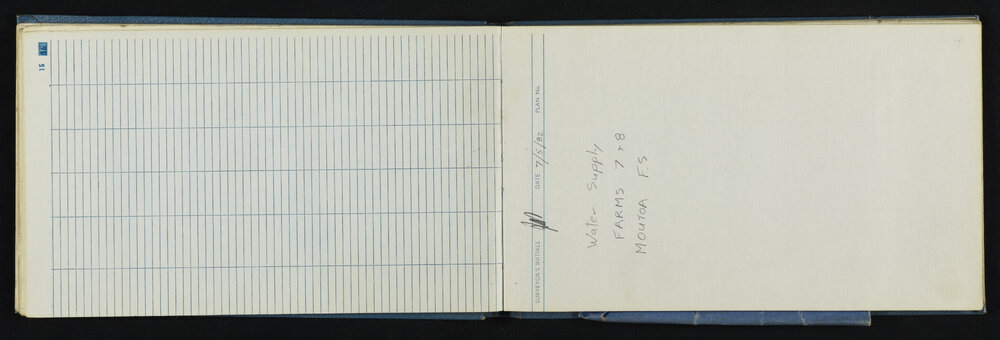 15
SURVEYOR'S INITIALS DATE 7/5/82 PLAN No.
Water Supply
FARMS 7 & 8
MOUTOA F.S